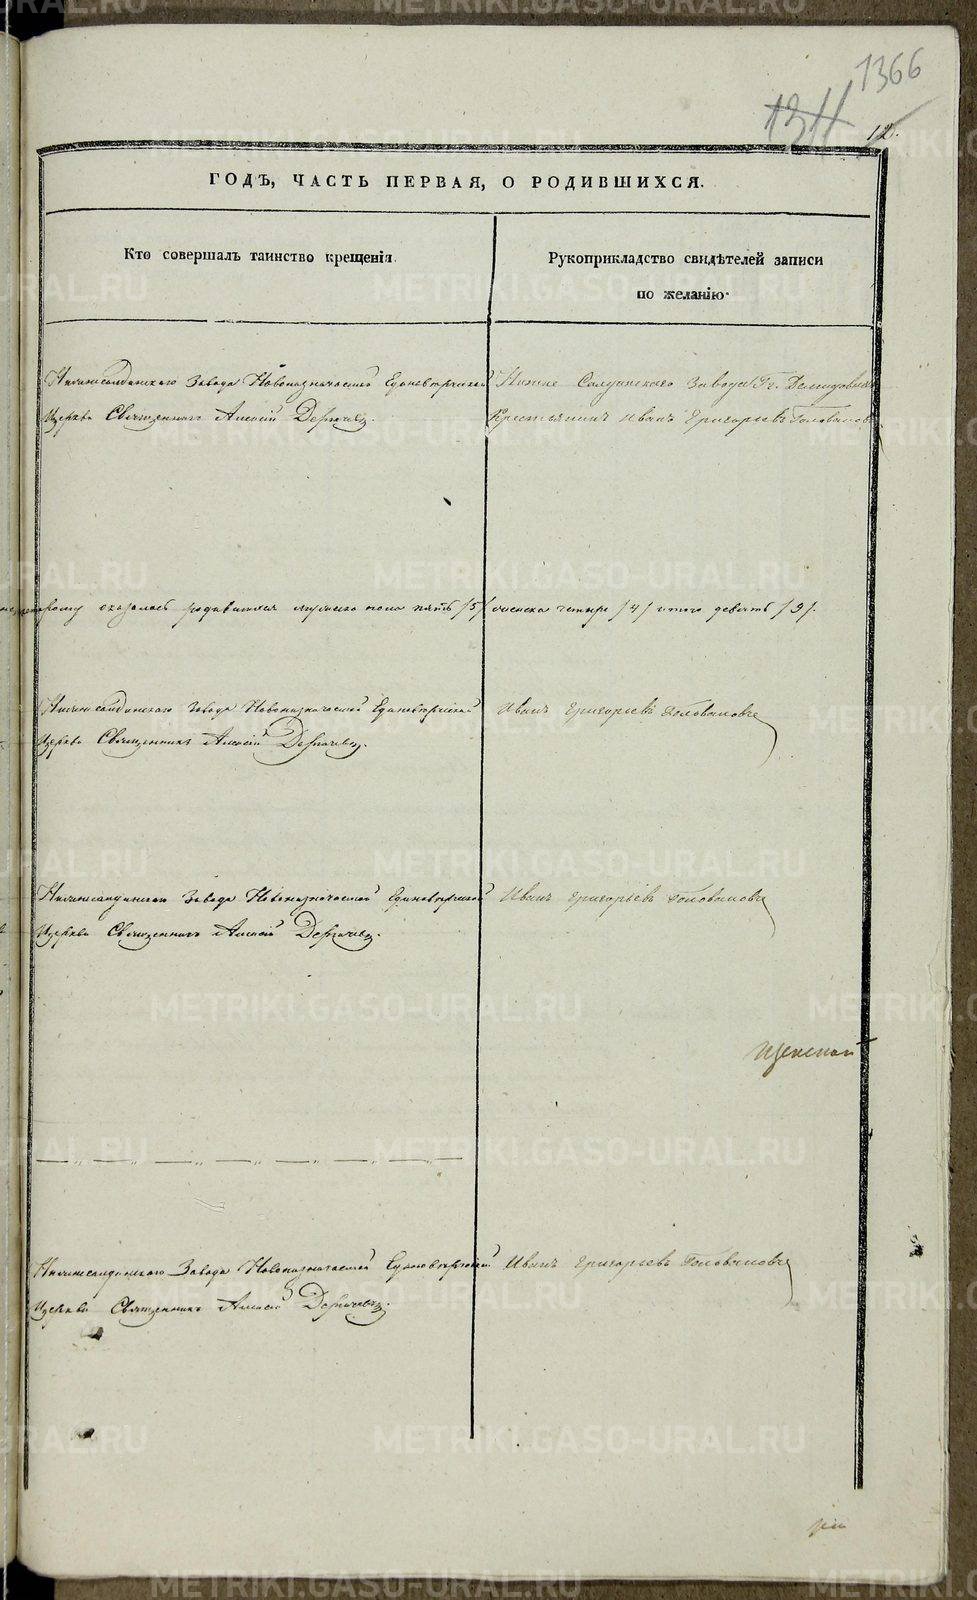 1366
1311
12.
ГОДЪ, ЧАСТЬ ПЕРВАЯ, О РОДИВШИХСЯ.
Кто совершалъ таинство крещенія.
Рукоприкладство свидѣтелей записи
по желанію.
Нижнесалдинскаго Завода Новоназначаемой Единоверческой
Церкви Священникъ Алексій Дерпачевъ.
Нижне Салдинскаго Завода Гг. Демидовыхъ
Крестьянинъ Иванъ Григорьевъ Головановъ
оказалось родившихся мужеска пола пять /5/ женска четыре /4/ итого девять /9/.
Нижнесалдинскаго Завода Новоназначаемой Единоверческой
Церкви Священникъ Алексій Дерпачевъ.
Иванъ Григорьевъ Головановъ
Нижнесалдинскаго Завода Новоназначаемой Единоверческой
Церкви Священникъ Алексій Дерпачевъ.
Иванъ Григорьевъ Головановъ
Нижнесалдинскаго Завода Новоназначаемой Единоверческой
Церкви Священникъ Алексій Дерпачевъ.
Иванъ Григорьевъ Головановъ
METRIKI.GASO-URAL.RU